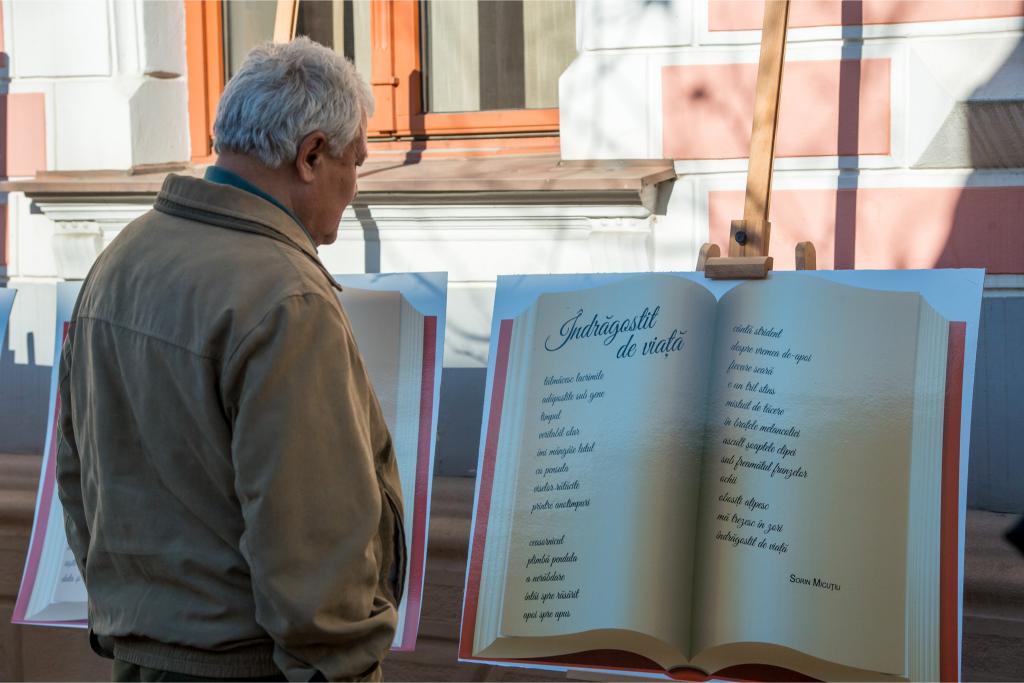 Îndrăgostit
de viață
tălmăcesc lacrimile
adăpostite sub gene
timpul
veritabil olar
îmi mângâie lutul
cu pensula
viselor rătăcite
printre anotimpuri
ceasornicul
plimbă pendula
a nerăbdare
întâi spre răsărit
apoi spre apus
cântă strident
despre vremea de-apoi
fiecare seară
e un tril stins
mistuit de tăcere
în brațele melancoliei
ascult șoaptele clipei
sub freamătul frunzelor
ochii
obosiți ațipesc
mă trezesc în zori
îndrăgostit de viață
Sorin Micuțiu